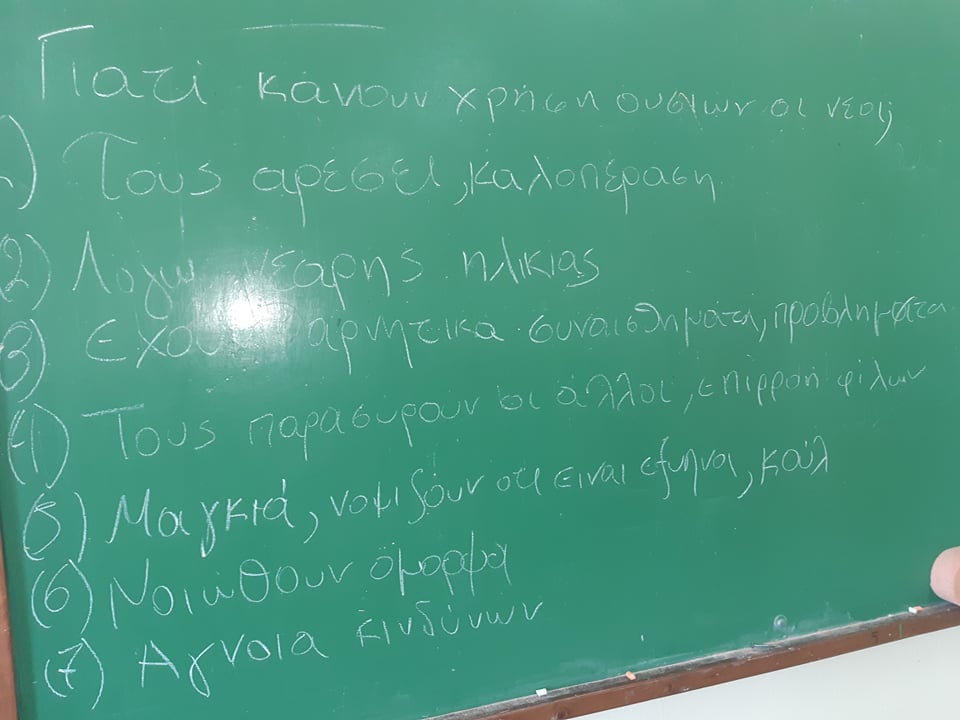 Γιατί κάνουν χρήση ουσιών οι νέοι;
) Τους αρέσει, καλοπέραση
(2) Λόγω νεαρης ηλικιας
(3) Εχουν αρνητικα συναισθηματα, προβληματα
(4) Τους παρασύρουν οι άλλοι, επιρροή φίλων
(5) Μαγκιά, νομιζουν οτι ειναι εξυπνοι, κουλ
(6) Νοιώθουν όμορφα
(7) Αγνοια κινδύνων